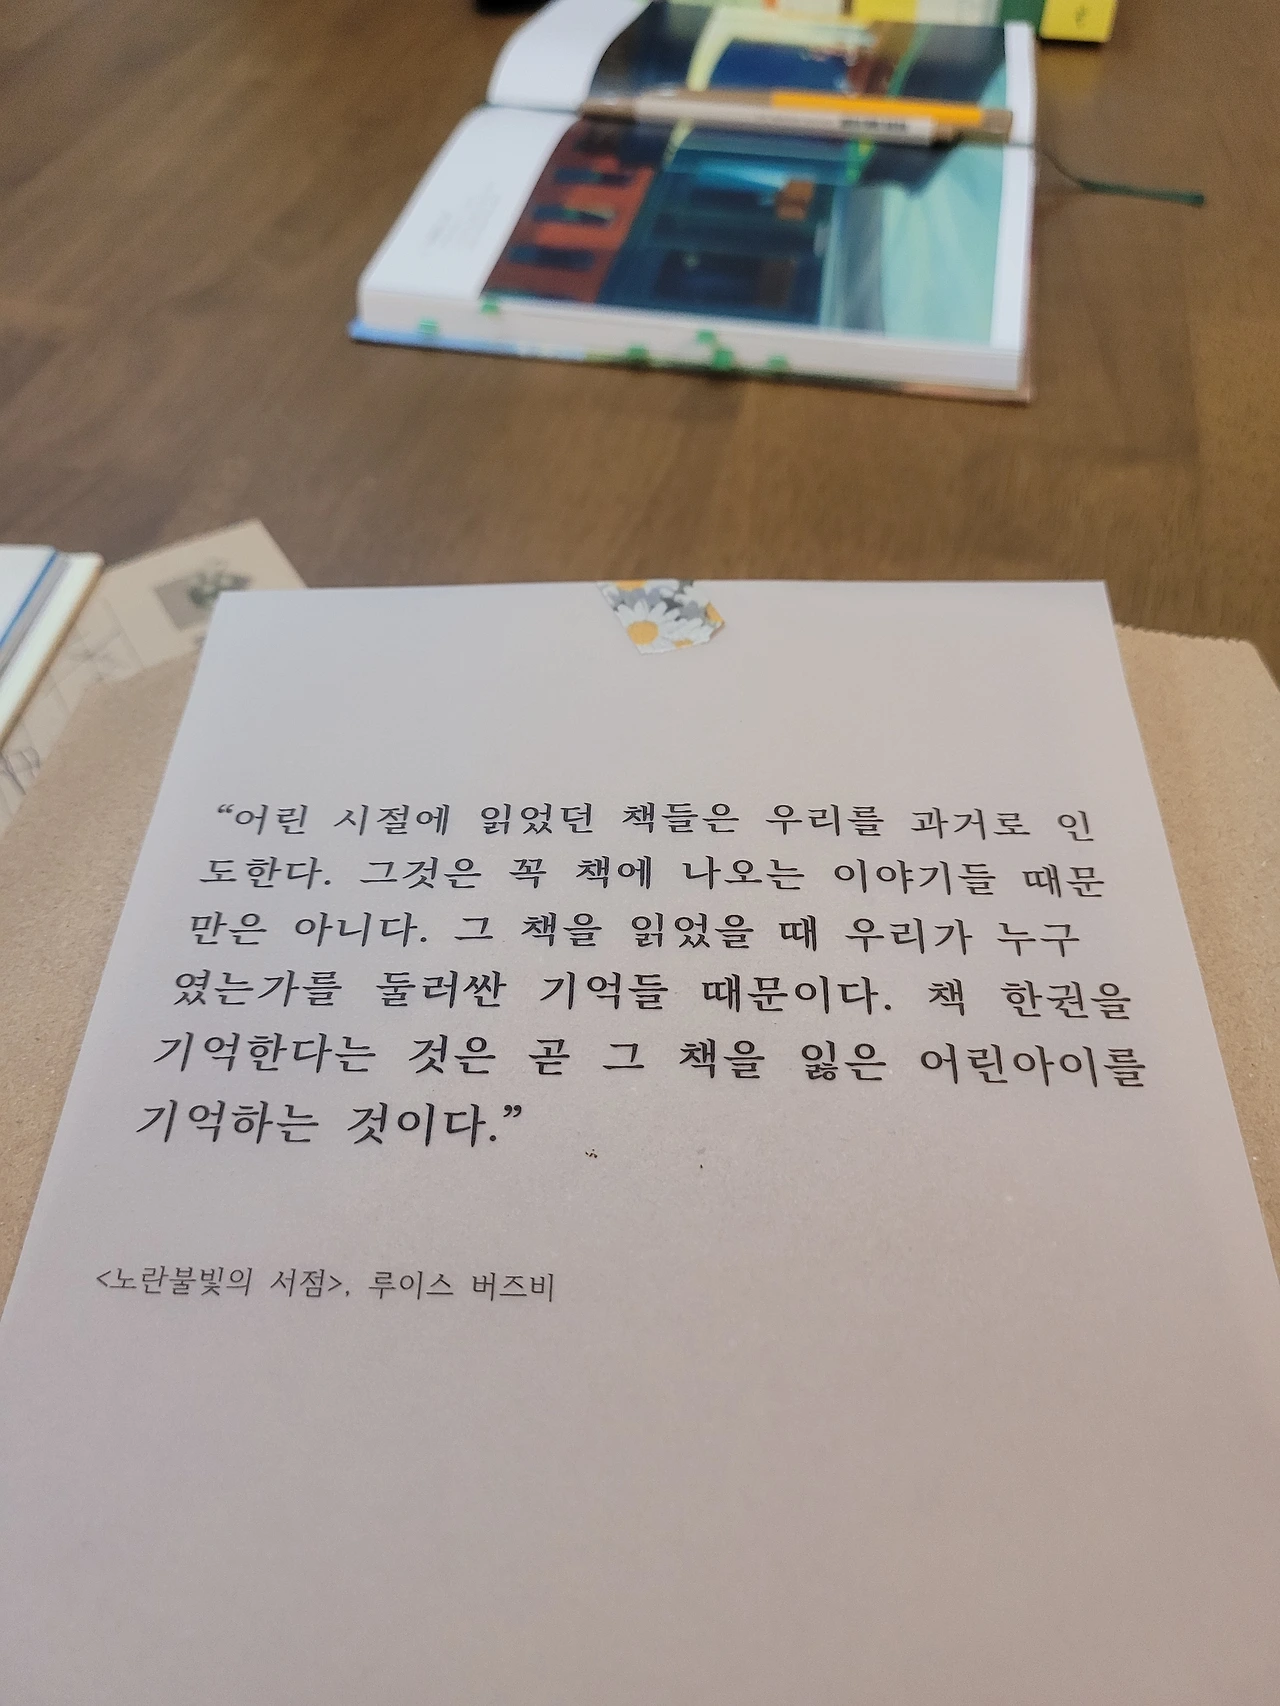 “어린 시절에 읽었던 책들은 우리를 과거로 인
도한다. 그것은 꼭 책에 나오는 이야기들 때문
만은 아니다. 그 책을 읽었을 때 우리가 누구
였는가를 둘러싼 기억들 때문이다. 책 한권을
기억한다는 것은 곧 그 책을 잃은 어린아이를
기억하는 것이다.”
<노란불빛의 서점>, 루이스 버즈비